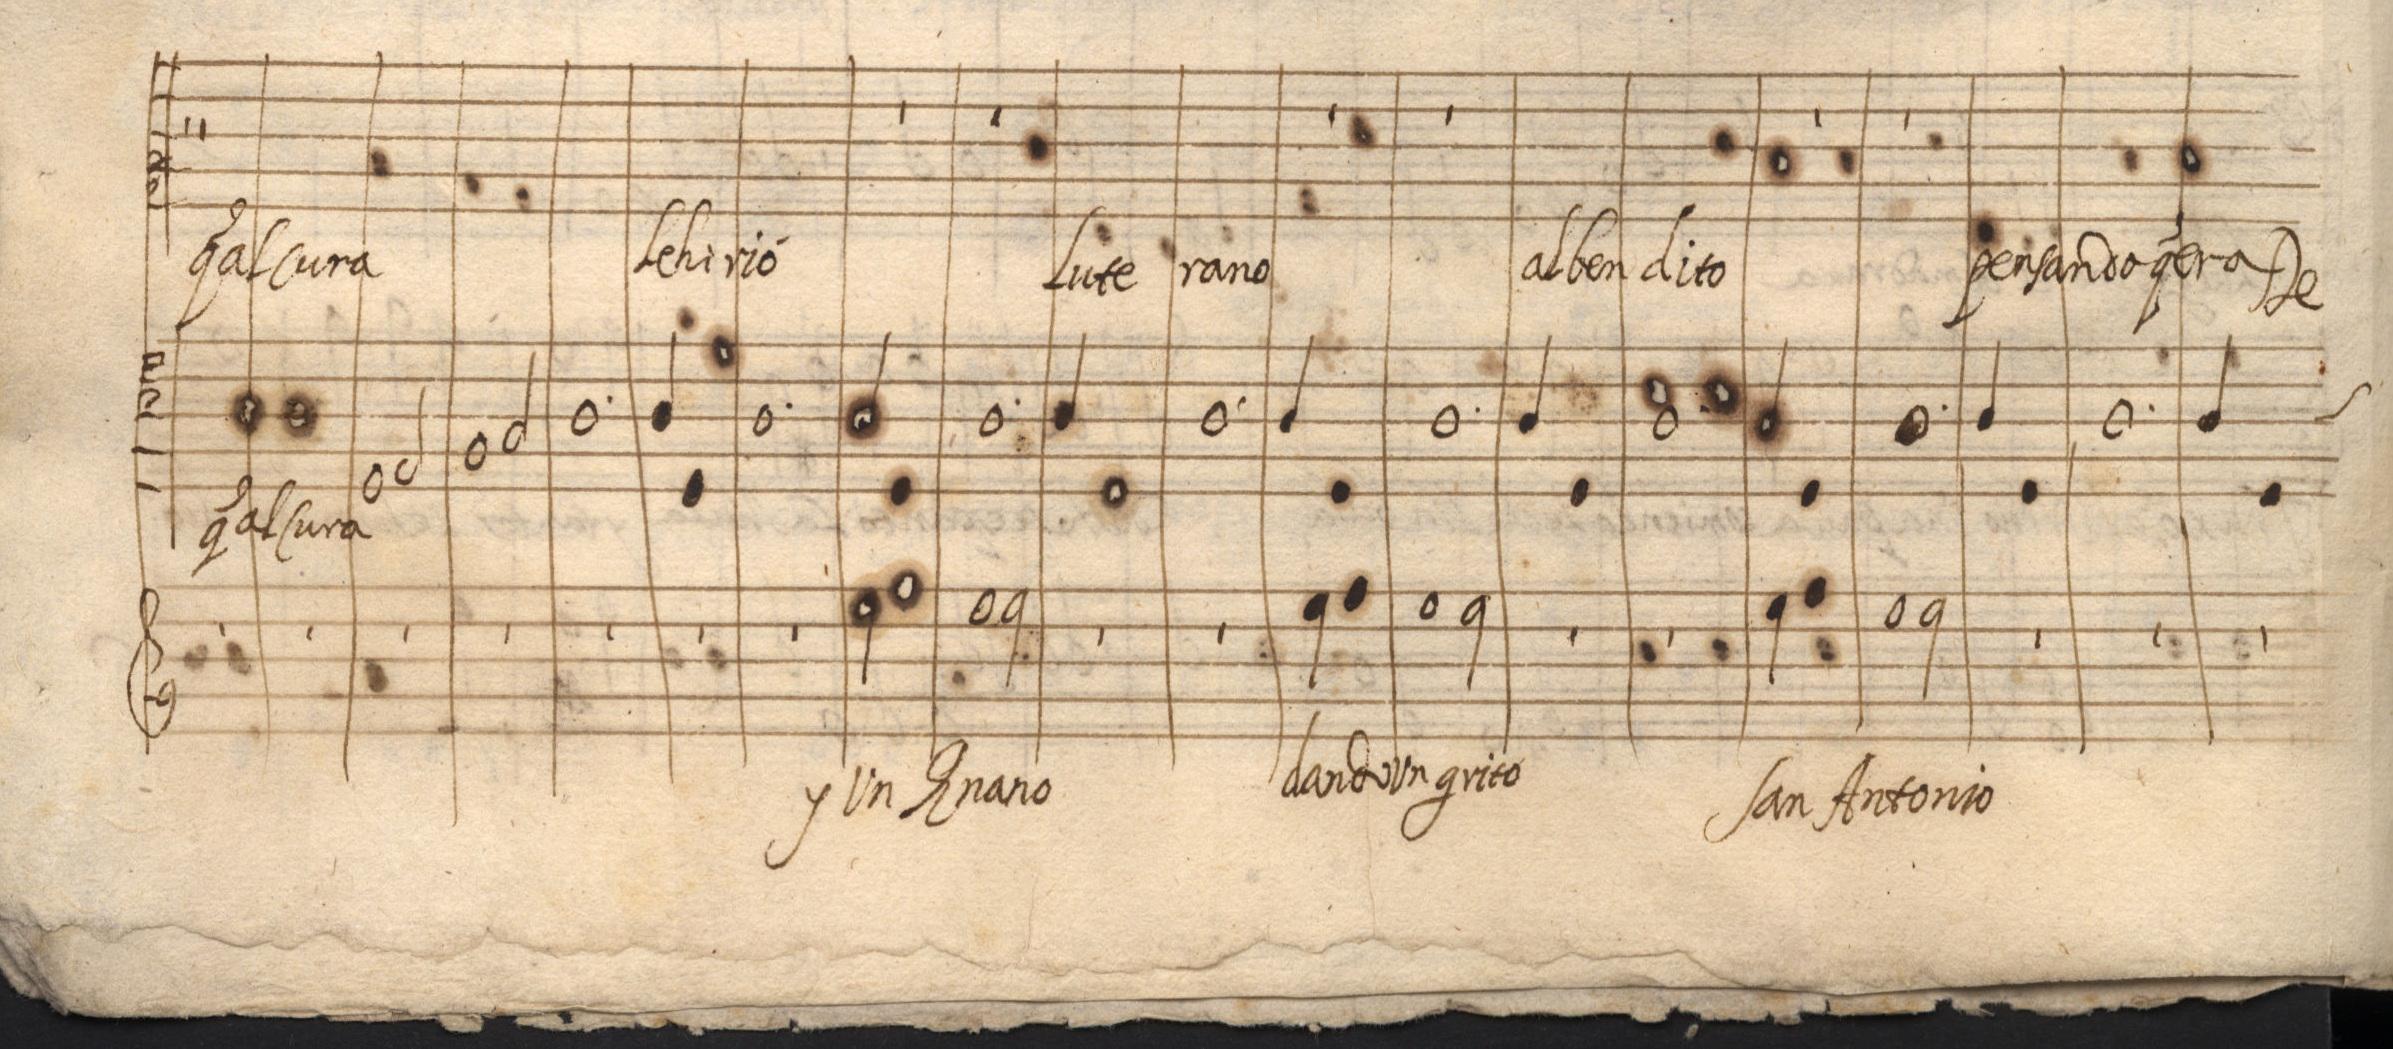 q̃ al cura le hirió lute rano al ben dito pensando q̃ era De
q̃ al cura
y Un Enano dando Un grito San Antonio